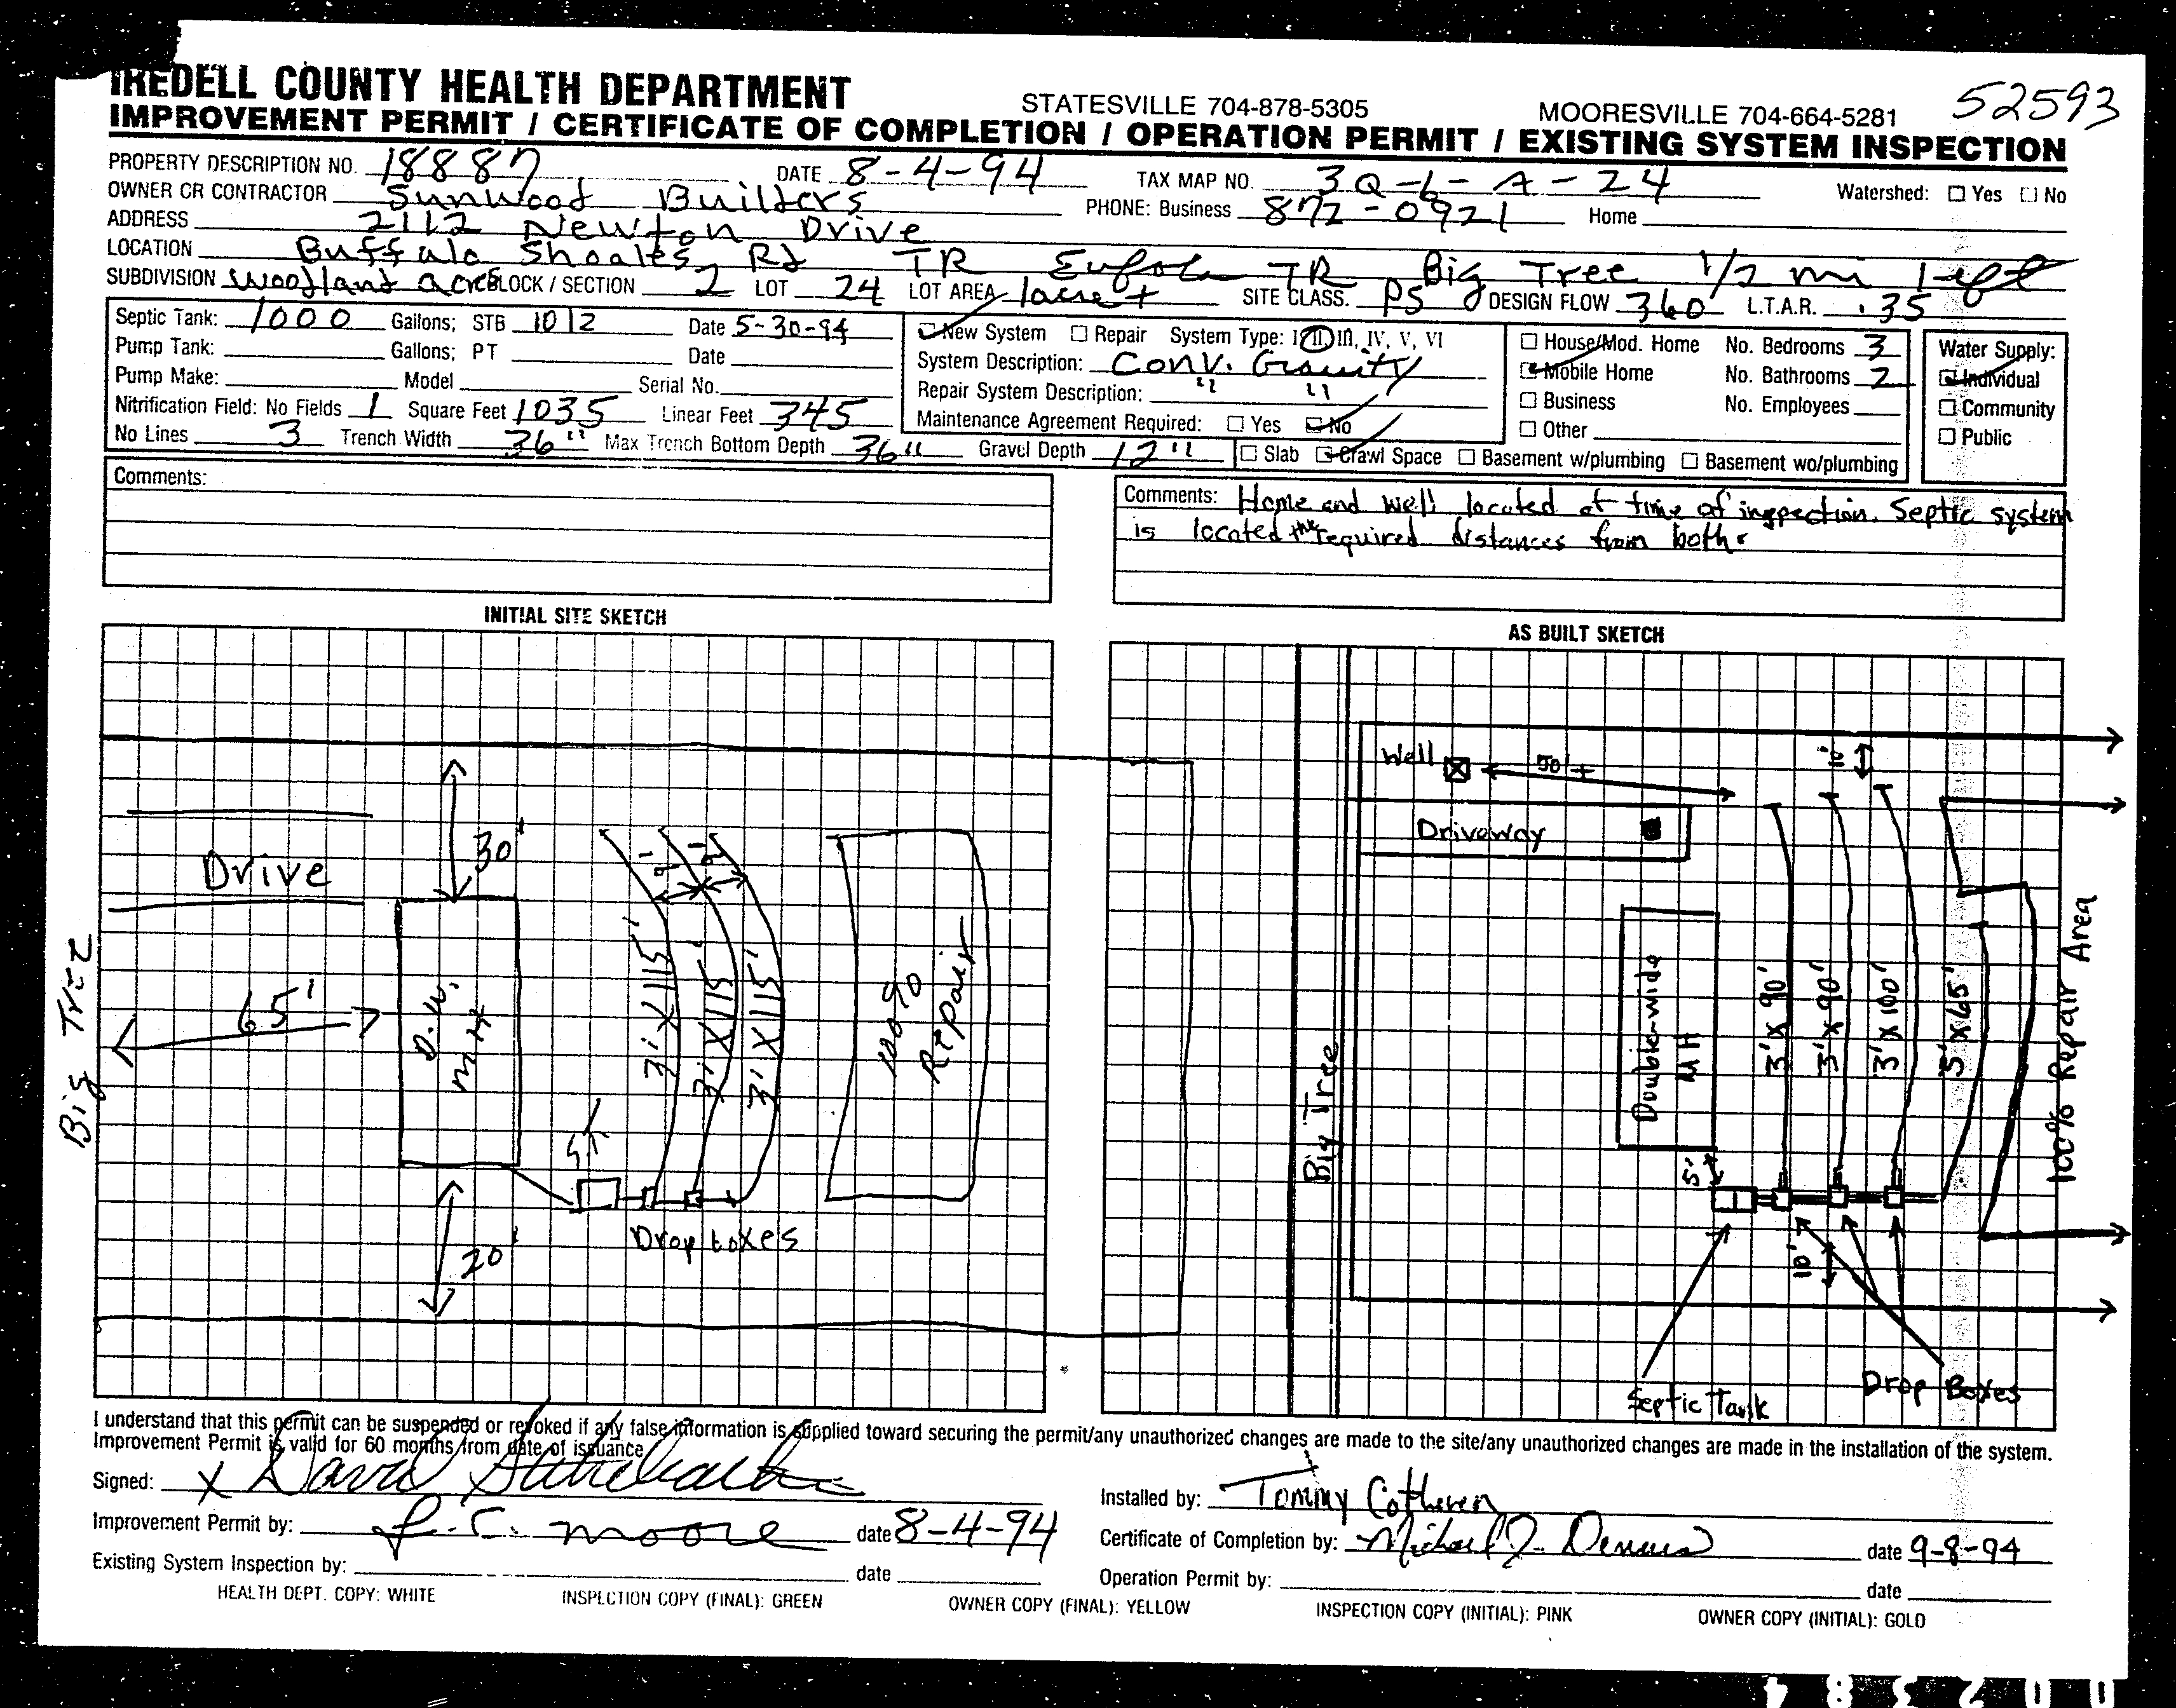 IREDELL COUNTY HEALTH DEPARTMENT STATESVILLE 704-878-5305 MOORESVILLE 704-664-5281 52593
IMPROVEMENT PERMIT / CERTIFICATE OF COMPLETION / OPERATION PERMIT / EXISTING SYSTEM INSPECTION
PROPERTY DESCRIPTION NO. 18887 DATE 8-4-94 TAX MAP NO. 3Q-6-A-24 Watershed: ☐ Yes ☐ No
OWNER OR CONTRACTOR Sunwood Builders PHONE: Business 872-0921 Home
ADDRESS 2112 Newton Drive
LOCATION Buffalo Shoales Rd TR Eufola TR Big Tree 1/2 mi left
SUBDIVISION Woodland acres BLOCK / SECTION 2 LOT 24 LOT AREA 1acre+ SITE CLASS. PS DESIGN FLOW 360 L.T.A.R. .35
Septic Tank: 1000 Gallons; STB 1012 Date 5-30-94
Pump Tank: Gallons; PT Date
Pump Make: Model Serial No.
Nitrification Field: No Fields 1 Square Feet 1035 Linear Feet 345
No Lines 3 Trench Width 36" Max Trench Bottom Depth 36" Gravel Depth 12"
☑ New System ☐ Repair System Type: I, II, III, IV, V, VI
System Description: Conv. Gravity
Repair System Description: " "
Maintenance Agreement Required: ☐ Yes ☑ No
☐ Slab ☑ Crawl Space ☐ Basement w/plumbing ☐ Basement wo/plumbing
☐ House/Mod. Home No. Bedrooms 3
☑ Mobile Home No. Bathrooms 2
☐ Business No. Employees
☐ Other
Water Supply:
☑ Individual
☐ Community
☐ Public
Comments:
Comments: Home and well located at time of inspection. Septic system
is located the required distances from both.
INITIAL SITE SKETCH
Drive
30'
9'
9'
Big Tree
65'
D.W.
MH
3' X 115'
3' X 115'
3' X 115'
100%
Repair
5'
20'
Drop boxes
AS BUILT SKETCH
Well
50'+
10'
Driveway
Big Tree
Double-wide
MH
3' X 90'
3' X 90'
3' X 100'
3' X 65'
100% Repair Area
5'
10'
Septic Tank
Drop Boxes
I understand that this permit can be suspended or revoked if any false information is supplied toward securing the permit/any unauthorized changes are made to the site/any unauthorized changes are made in the installation of the system.
Improvement Permit is valid for 60 months from date of issuance
Signed: X David
Improvement Permit by: moore date 8-4-94
Existing System Inspection by: date
Installed by: Tommy Cotheren
Certificate of Completion by: Michael J. Dennis date 9-8-94
Operation Permit by: date
HEALTH DEPT. COPY: WHITE INSPECTION COPY (FINAL): GREEN OWNER COPY (FINAL): YELLOW INSPECTION COPY (INITIAL): PINK OWNER COPY (INITIAL): GOLD